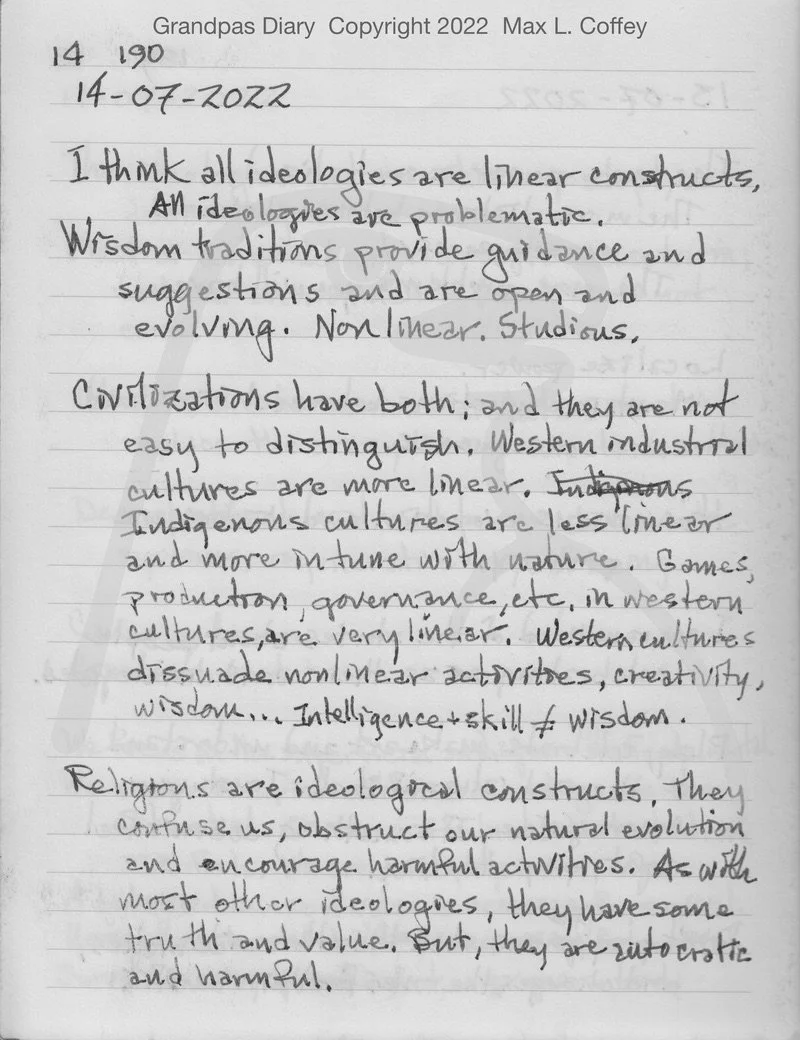 Grandpas Diary Copyright 2022 Max L. Coffey
14 190
14-07-2022
I think all ideologies are linear constructs,
All ideologies are problematic.
Wisdom traditions provide guidance and
suggestions and are open and
evolving. Nonlinear. Studious.
Civilizations have both; and they are not
easy to distinguish. Western industrial
cultures are more linear. Indigenous
Indigenous cultures are less linear
and more in tune with nature. Games,
production, governance, etc. in western
cultures, are very linear. Western cultures
dissuade nonlinear activities, creativity,
wisdom... Intelligence + skill ≠ wisdom.
Religions are ideological constructs. They
confuse us, obstruct our natural evolution
and encourage harmful activities. As with
most other ideologies, they have some
truth and value. But, they are autocratic
and harmful.